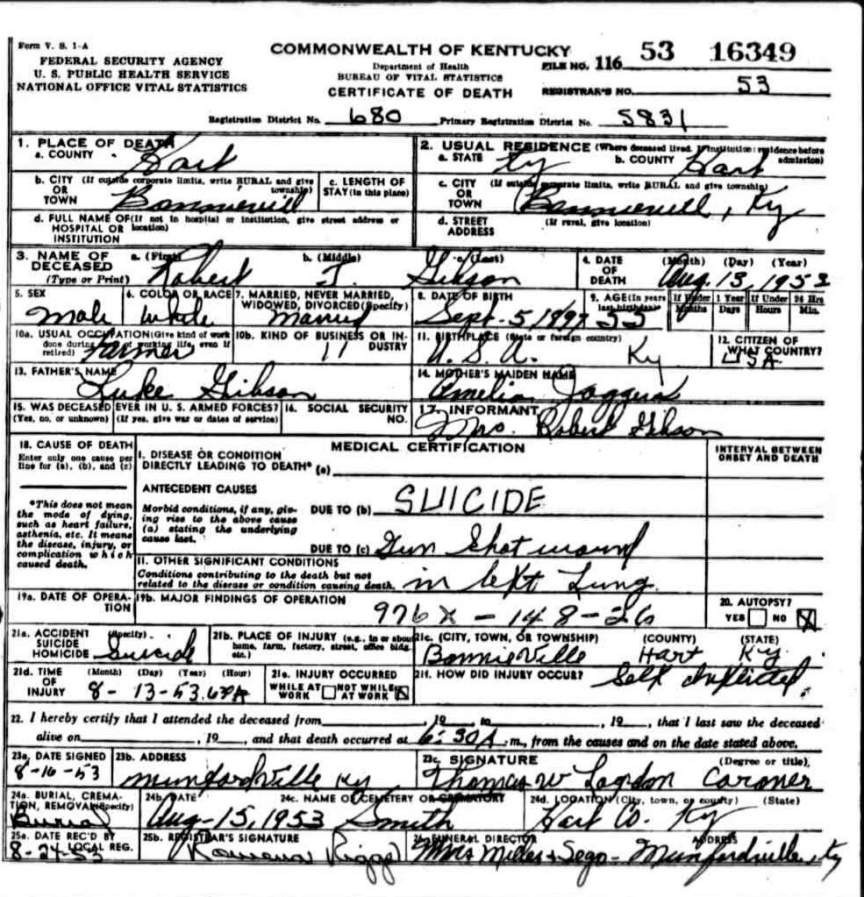 Form V. S. 1-A
FEDERAL SECURITY AGENCY
U. S. PUBLIC HEALTH SERVICE
NATIONAL OFFICE VITAL STATISTICS
COMMONWEALTH OF KENTUCKY
Department of Health
BUREAU OF VITAL STATISTICS
CERTIFICATE OF DEATH
FILE NO. 116 53 16349
REGISTRAR'S NO. 53
Registration District No. 680 Primary Registration District No. 5831
1. PLACE OF DEATH
a. COUNTY Hart
2. USUAL RESIDENCE (Where deceased lived. If institution: residence before admission)
a. STATE Ky b. COUNTY Hart
b. CITY (If outside corporate limits, write RURAL and give township) OR TOWN Bonnieville
c. LENGTH OF STAY (in this place)
c. CITY (If outside corporate limits, write RURAL and give township) OR TOWN Bonnieville, Ky
d. FULL NAME OF (If not in hospital or institution, give street address or location) HOSPITAL OR INSTITUTION
d. STREET ADDRESS (If rural, give location)
3. NAME OF DECEASED (Type or Print) a. (First) Robert b. (Middle) T. c. (Last) Gibson
4. DATE OF DEATH (Month) (Day) (Year) Aug. 13, 1953
5. SEX Male
6. COLOR OR RACE White
7. MARRIED, NEVER MARRIED, WIDOWED, DIVORCED (Specify) Married
8. DATE OF BIRTH Sept. 5, 1897
9. AGE (In years last birthday) 55 If Under 1 Year Months Days If Under 24 Hrs Hours Min.
10a. USUAL OCCUPATION (Give kind of work done during most of working life, even if retired) Farmer
10b. KIND OF BUSINESS OR INDUSTRY 11
11. BIRTHPLACE (State or foreign country) U.S.A. Ky
12. CITIZEN OF WHAT COUNTRY? USA
13. FATHER'S NAME Luke Gibson
14. MOTHER'S MAIDEN NAME Amelia Jaggers
15. WAS DECEASED EVER IN U. S. ARMED FORCES? (Yes, no, or unknown) (If yes, give war or dates of service)
16. SOCIAL SECURITY NO.
17. INFORMANT Mrs. Robert Gibson
18. CAUSE OF DEATH
Enter only one cause per line for (a), (b), and (c)
*This does not mean the mode of dying, such as heart failure, asthenia, etc. It means the disease, injury, or complication which caused death.
MEDICAL CERTIFICATION
INTERVAL BETWEEN ONSET AND DEATH
I. DISEASE OR CONDITION DIRECTLY LEADING TO DEATH* (a)
ANTECEDENT CAUSES
Morbid conditions, if any, giving rise to the above cause (a) stating the underlying cause last.
DUE TO (b) SUICIDE
DUE TO (c) Gun Shot wound
II. OTHER SIGNIFICANT CONDITIONS
Conditions contributing to the death but not related to the disease or condition causing death.
in left Lung
19a. DATE OF OPERATION
19b. MAJOR FINDINGS OF OPERATION
976X - 148 - 26
20. AUTOPSY? YES NO X
21a. ACCIDENT SUICIDE HOMICIDE (Specify) Suicide
21b. PLACE OF INJURY (e.g., in or about home, farm, factory, street, office bldg. etc.)
21c. (CITY, TOWN, OR TOWNSHIP) (COUNTY) (STATE)
Bonnieville Hart Ky.
21d. TIME OF INJURY (Month) (Day) (Year) (Hour) 8-13-53
21e. INJURY OCCURRED WHILE AT WORK NOT WHILE AT WORK X
21f. HOW DID INJURY OCCUR? Self Inflicted.
22. I hereby certify that I attended the deceased from , 19 to , 19 , that I last saw the deceased
alive on , 19 , and that death occurred at 6:30 A m., from the causes and on the date stated above.
23a. DATE SIGNED 8-16-53
23b. ADDRESS Munfordville Ky
23c. SIGNATURE (Degree or title) Thomas W Logdon Coroner
24a. BURIAL, CREMATION, REMOVAL (Specify) Burial
24b. DATE Aug-15, 1953
24c. NAME OF CEMETERY OR CREMATORY Smith
24d. LOCATION (City, town, or county) (State) Hart Co. Ky
25a. DATE REC'D BY LOCAL REG. 8-24-53
25b. REGISTRAR'S SIGNATURE
FUNERAL DIRECTOR ADDRESS
Munfordville, Ky